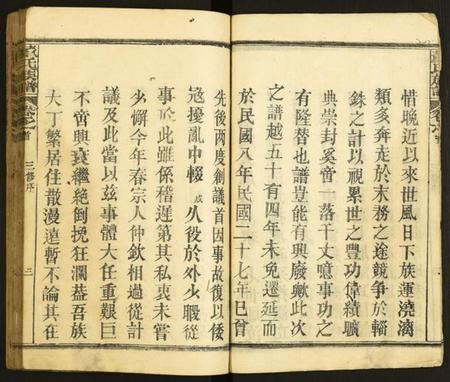 惜晚近以來世風日下族運澆漓
類多奔走於末務之途競爭於輜
銖之計以視累世之豐功偉績曠
典崇封奚啻一落千丈噫事功之
有隆替也譜豈能有興廢歟此次
之譜越五十有四年未免遷延而
於民國八年民國二十七年已曾
先後兩度創議首因事故復以倭
寇擾亂中輟 久役於外少暇從
事於此雖係稽遲第其私衷未嘗
少懈今年春宗人仲欽相過從計
議及此當以兹事體大任重艱巨
不啻興衰繼絕倒挽狂瀾葢吾族
大丁繁居住散漫遠暫不論其在
氏族譜
卷之首
三修序
二